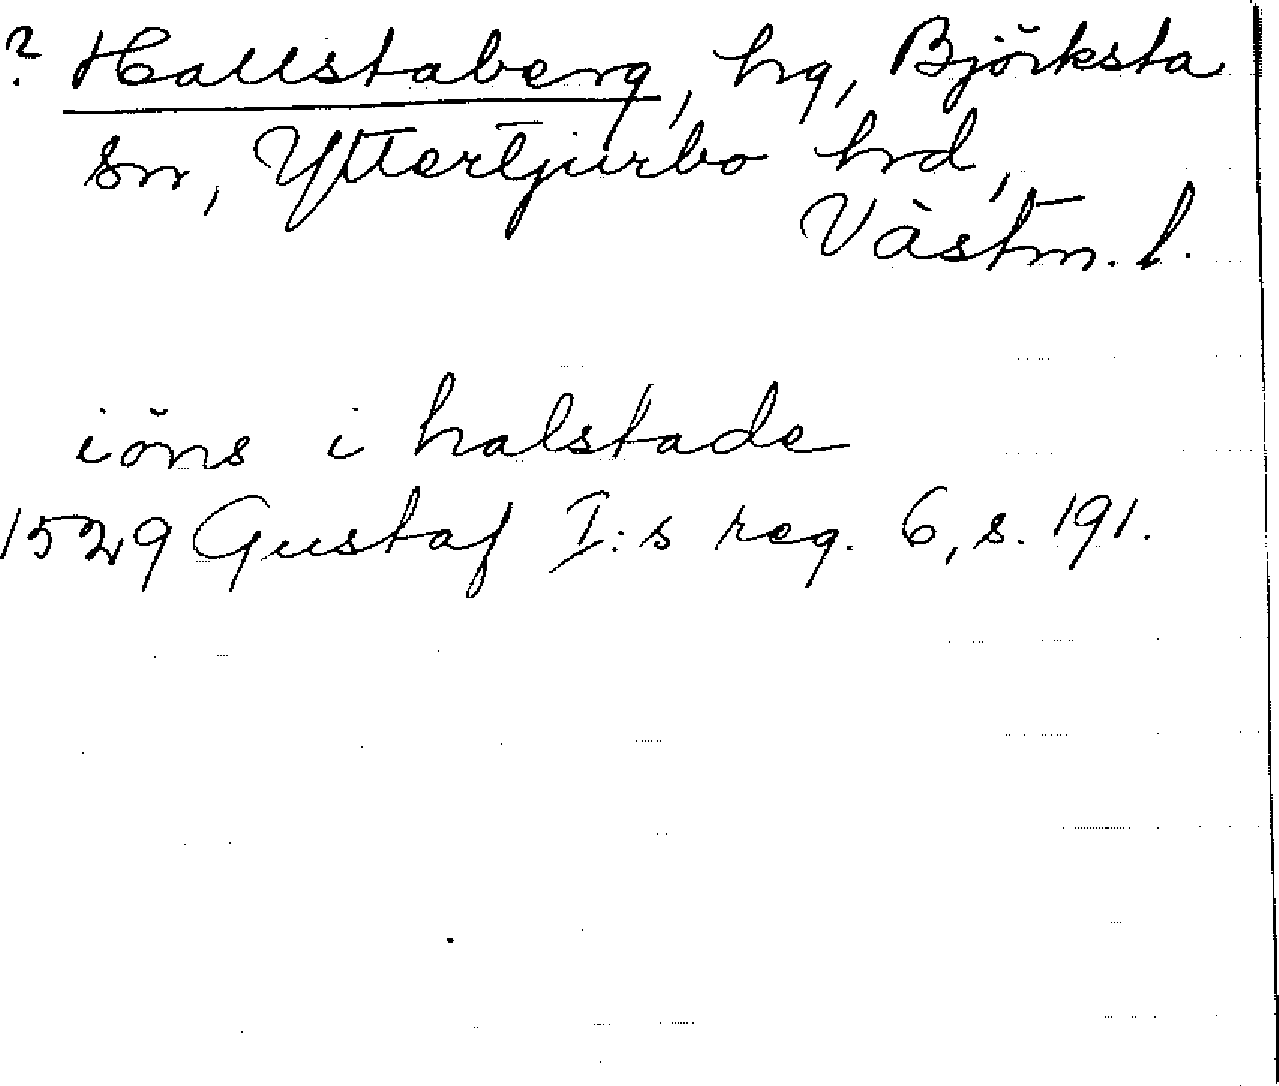 ? Hallstaberg, hg, Björksta
sn, Yttertjurbo hrd,
Västm. l.
iöns i halstade
1529 Gustaf I:s reg. 6, s. 191.